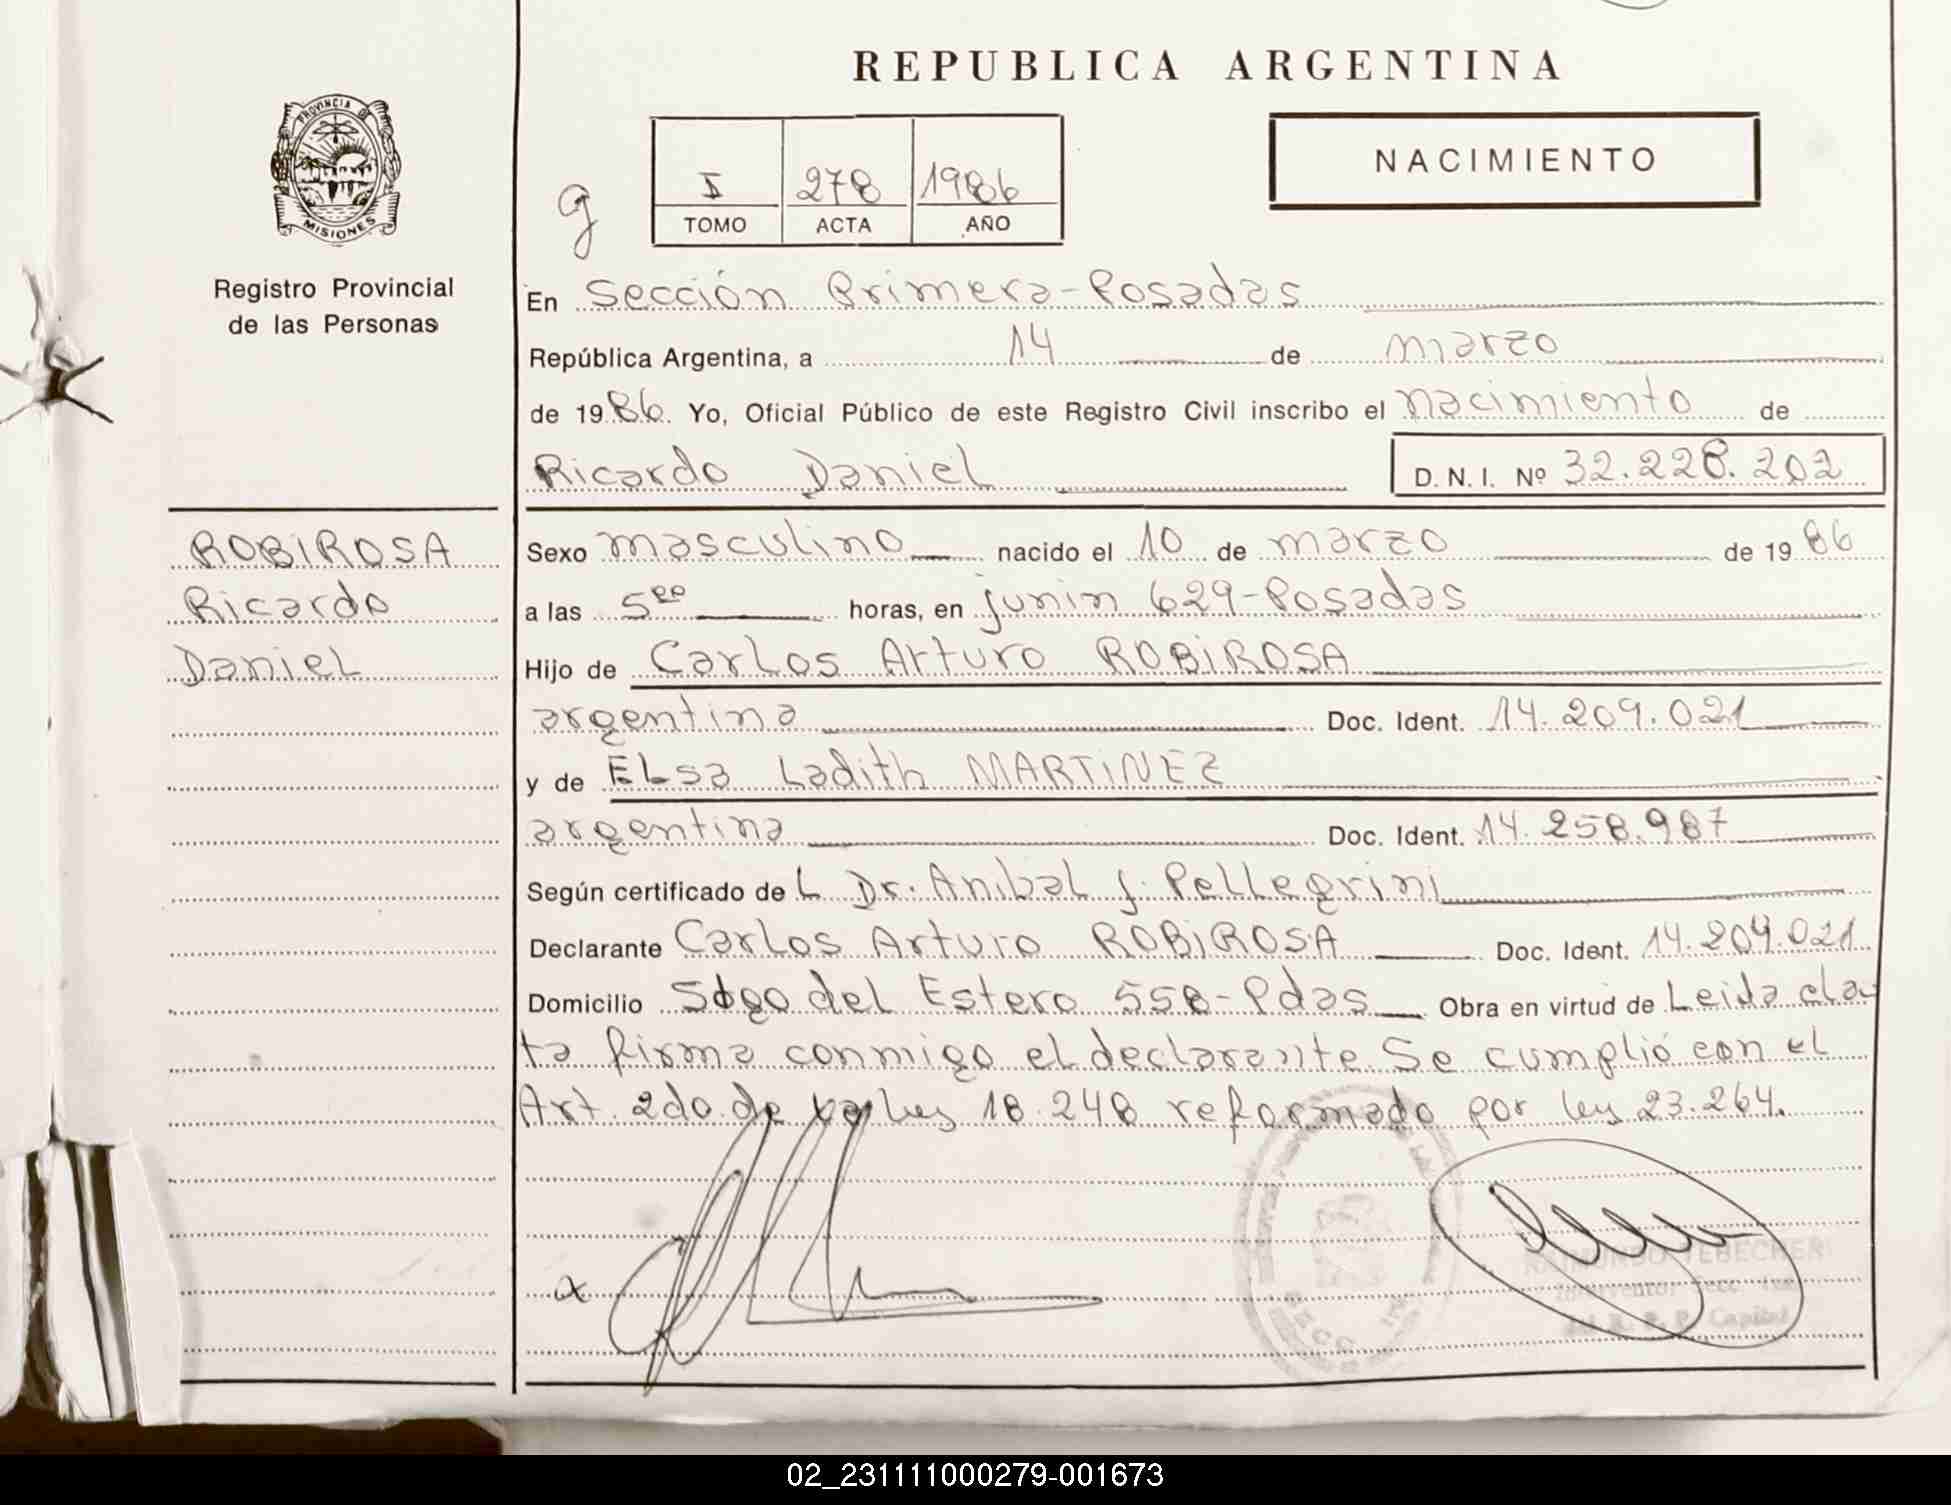 REPUBLICA ARGENTINA
PROVINCIA DE
MISIONES
Registro Provincial
de las Personas
NACIMIENTO
g
I 278 1986
TOMO ACTA AÑO
En Sección Primera-Posadas
República Argentina, a 14 de marzo
de 1986. Yo, Oficial Público de este Registro Civil inscribo el nacimiento de
Ricardo Daniel D.N.I. Nº 32.228.202
ROBIROSA
Ricardo
Daniel
Sexo masculino nacido el 10 de marzo de 1986
a las 5⁰⁰ horas, en junin 629-Posadas
Hijo de Carlos Arturo ROBIROSA
argentina Doc. Ident. 14.209.021
y de ELsa Ladith MARTINEZ
argentina Doc. Ident. 14.258.987
Según certificado deL Dr. Anibal J. Pellegrini
Declarante Carlos Arturo ROBIROSA Doc. Ident. 14.209.021
Domicilio Stgo del Estero 558-Pdas Obra en virtud de Leida el ac
ta firma conmigo el declarante. Se cumplió con el
Art. 2do. de la ley 18.248 reformado por ley 23.264.
RAIMUNDO TEBECHERI
Interventor Secc. 1ra
del R. P. P. Capital
02_231111000279-001673